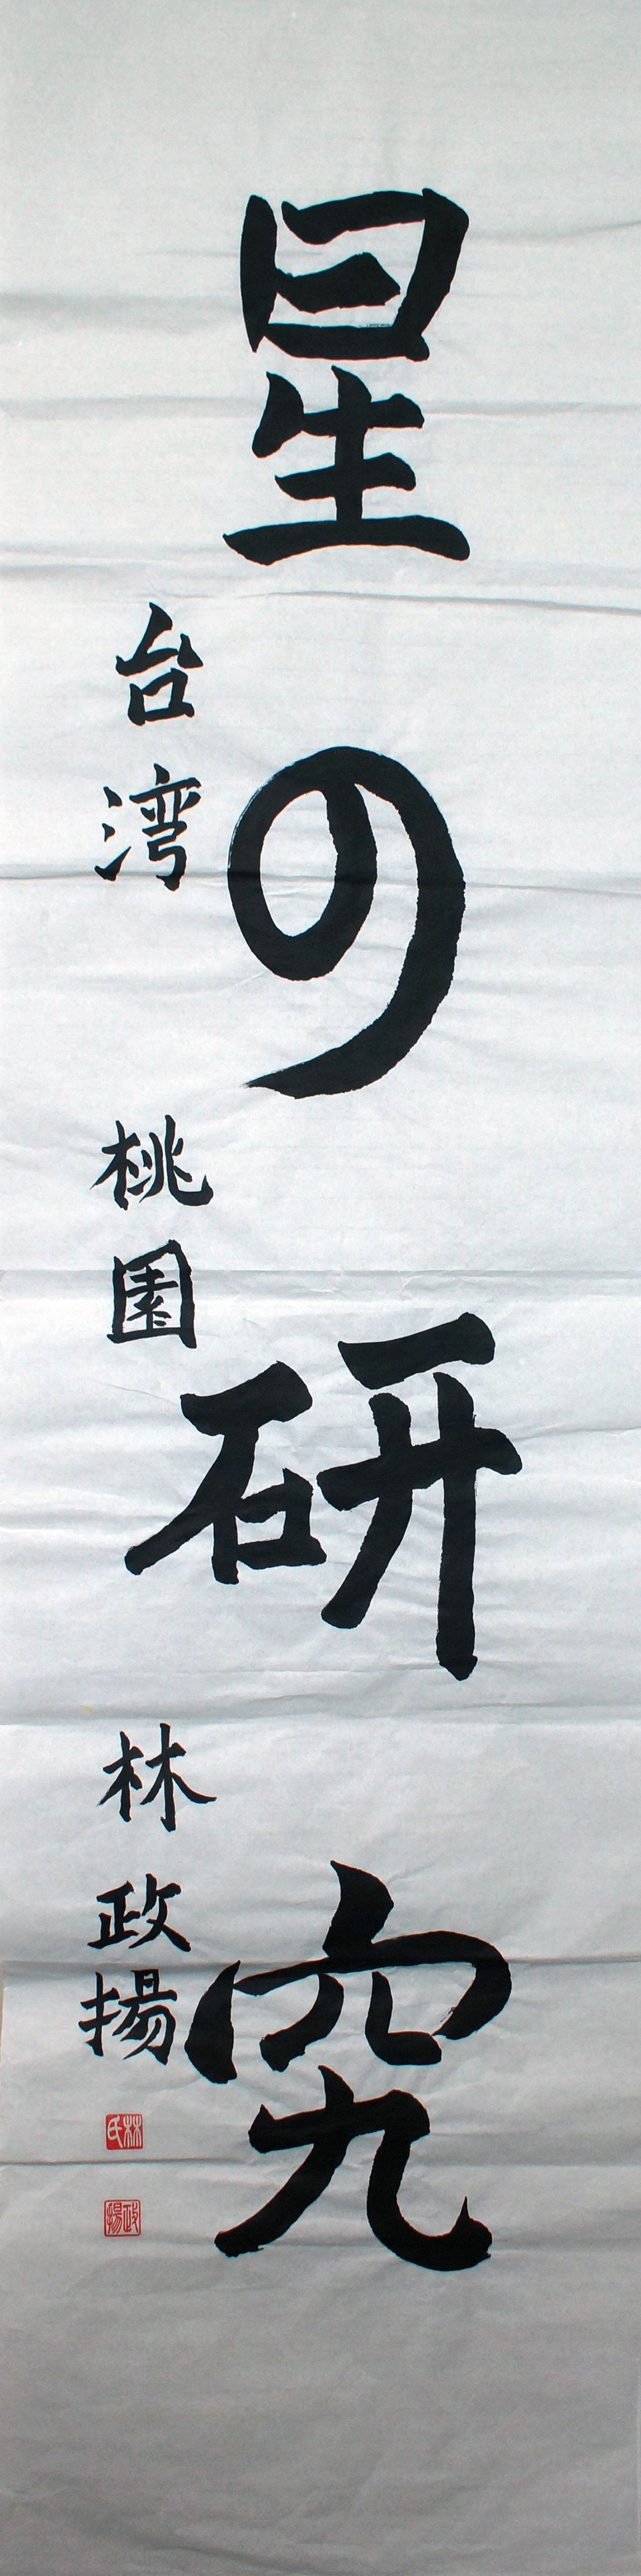 星の研究
台湾 桃園 林政揚
林氏
政揚